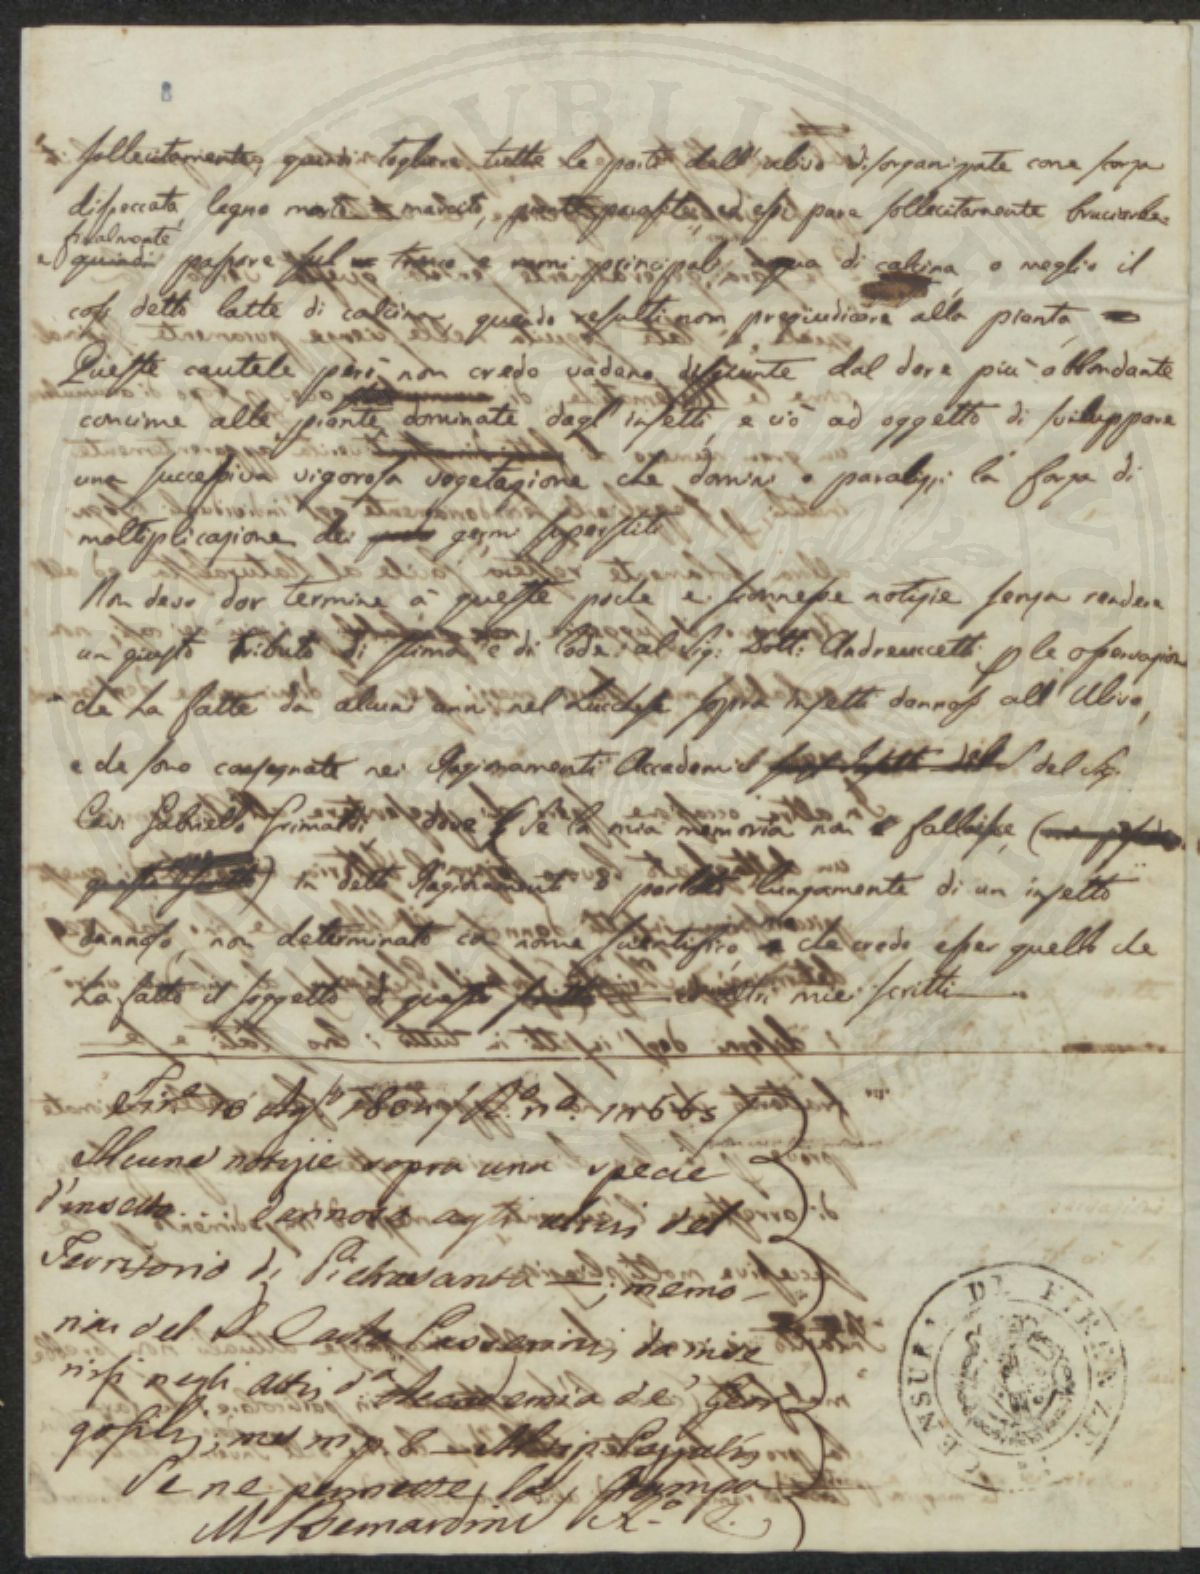 sollecitamente, quindi togliere tutte le parti dell'ulivo disorganizzate come scorza
disseccata, legno morto e marcito, piante parasite, ed essi pure sollecitamente bruciarle
finalmente
e quindi passare sul tronco e rami principali acqua di calcina, o meglio il
così detto latte di calcina quando resulti non pregiudicare alla pianta
Queste cautele però non credo vadano disgiunte dal dare più abbondante
concime alle piante dominate dagl'insetti, e ciò ad oggetto di sviluppare
una successiva vigorosa vegetazione che domini o paralizzi la forza di
moltiplicazione dei germi superstiti
Non devo dar termine a queste poche e sconnesse notizie senza rendere
un giusto tributo di stima e di lode al Sig: Dott: Andreuccetti p le osservazioni
che ha fatte da alcuni anni nel Lucchese sopra insetti dannosi all'Ulivo,
e che sono consegnate nei Ragionamenti Accademici del Sig.
Cav. Gabriello Grimaldi dove se la mia memoria non fallisse
in detti Ragionamenti è parlato lungamente di un insetto
dannoso, non determinato con nome scientifico, e che credo esser quello che
ha fatto il soggetto di questo ed altri miei scritti
Alcune notizie sopra una specie
d'insetto dannosa agli ulivi del
Territorio di Pietrasanta; memo-
ria del D. Carlo Passerini da inse
rirsi negli atti d.a Accademia de' Geor
gofili;
Se ne permette la stampa
M Bernardini
CENSURA DI FIRENZE